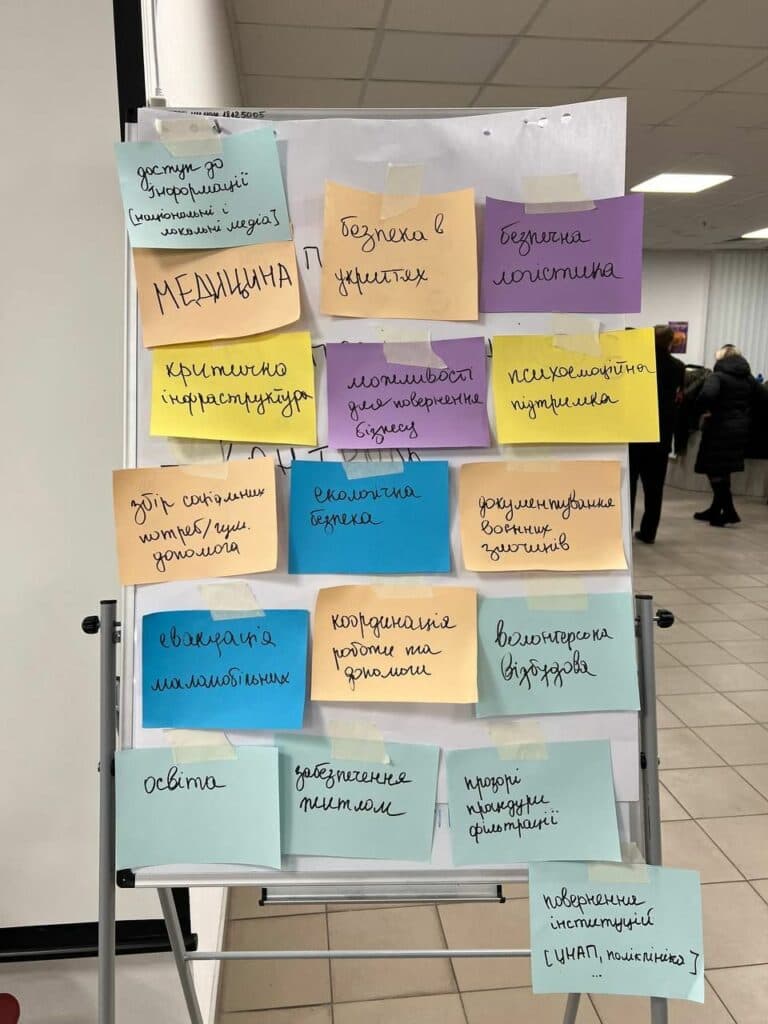 доступ до
інформації
[національні і
локальні медіа]
МЕДИЦИНА
безпека в
укриттях
безпечна
логістика
критична
інфраструктура
можливості
для повернення
бізнесу
психоемоційна
підтримка
збір соціальних
потреб/гум.
допомога
екологічна
безпека
документування
воєнних
злочинів
евакуація
маломобільних
координація
роботи та
допомоги
волонтерська
відбудова
освіта
забезпечення
житлом
прозорі
процедури
фільтрації
повернення
інституцій
[ЦНАП, поліклініка]
...